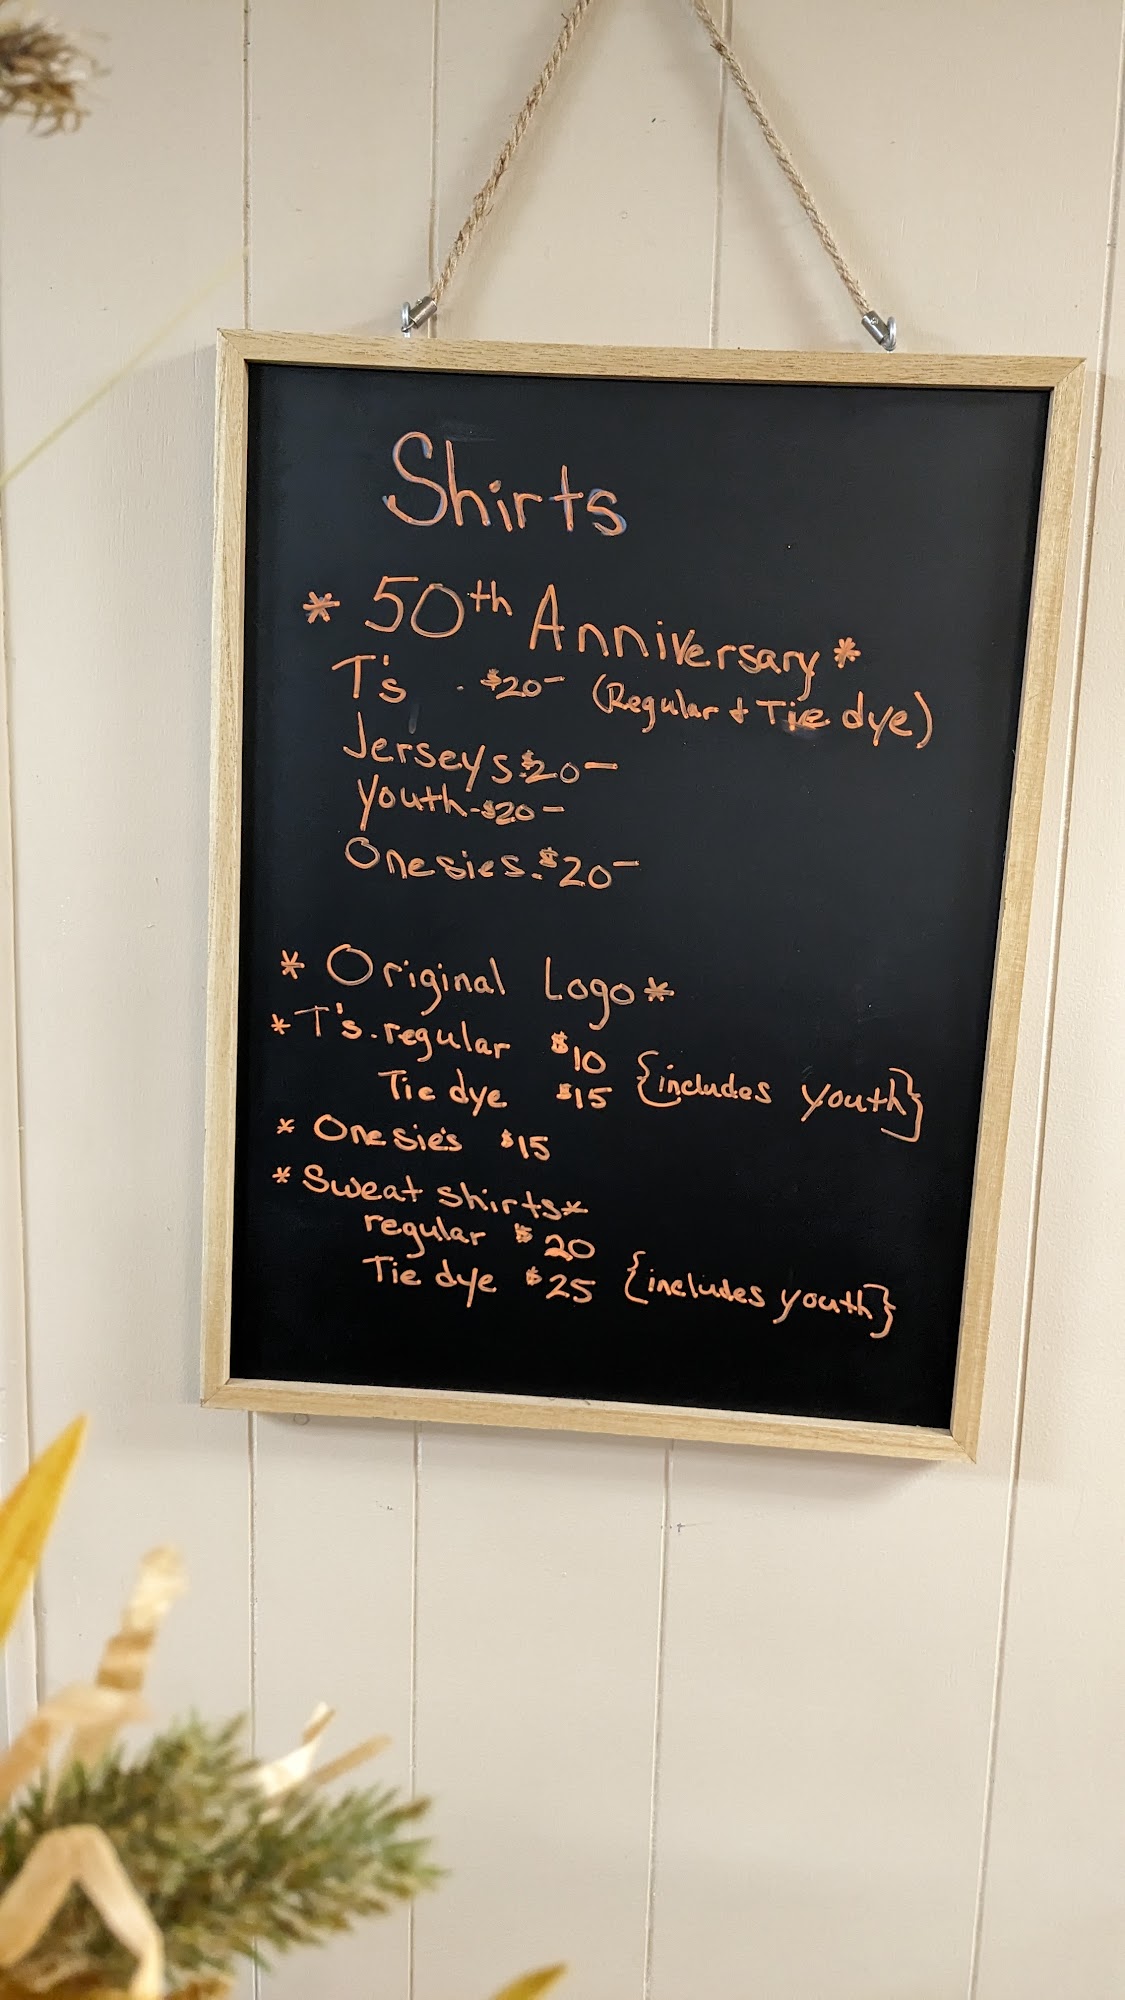 Shirts
* 50th Anniversary *
T's . $20- (Regular + Tie dye)
Jerseys.$20-
Youth-$20-
Onesies.$20-
* Original Logo *
* T's. regular $10
Tie dye $15 {includes youth}
* Onesie's $15
* Sweat shirts *
regular $20
Tie dye $25 {includes youth}